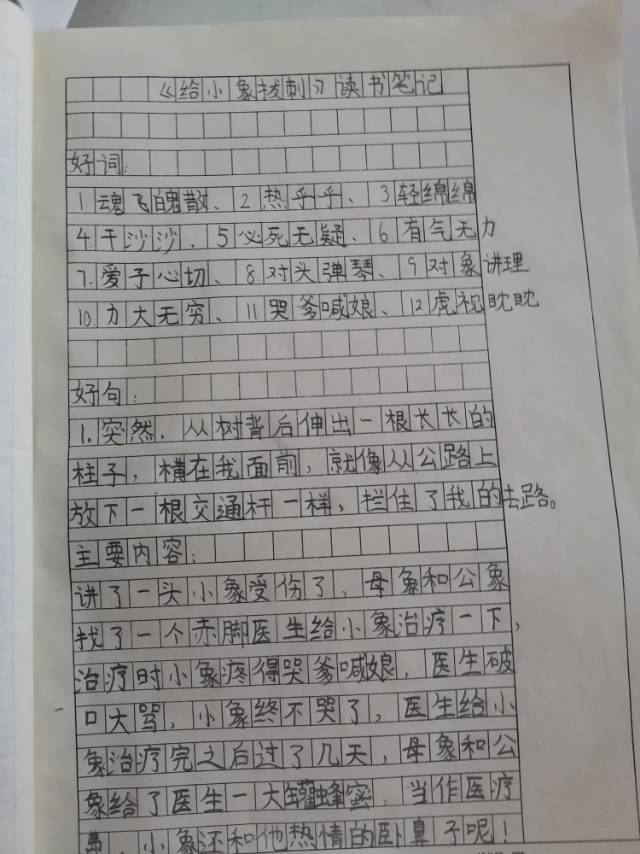 《给小象拔刺》读书笔记
好词:
1.魂飞魄散、2热乎乎、3轻绵绵
4干沙沙、5必死无疑、6有气无力
7.爱子心切、8对头弹琴、9对象讲理
10.力大无穷、11哭爹喊娘、12虎视眈眈
好句:
1.突然,从树背后伸出一根长长的
柱子,横在我面前,就像从公路上
放下一根交通杆一样,拦住了我的去路。
主要内容:
讲了一头小象受伤了,母象和公象
找了一个赤脚医生给小象治疗一下,
治疗时小象疼得哭爹喊娘,医生破
口大骂,小象终不哭了,医生给小
象治疗完之后过了几天,母象和公
象给了医生一大罐蜂蜜,当作医疗
费,小象还和他热情的卧鼻子呢!